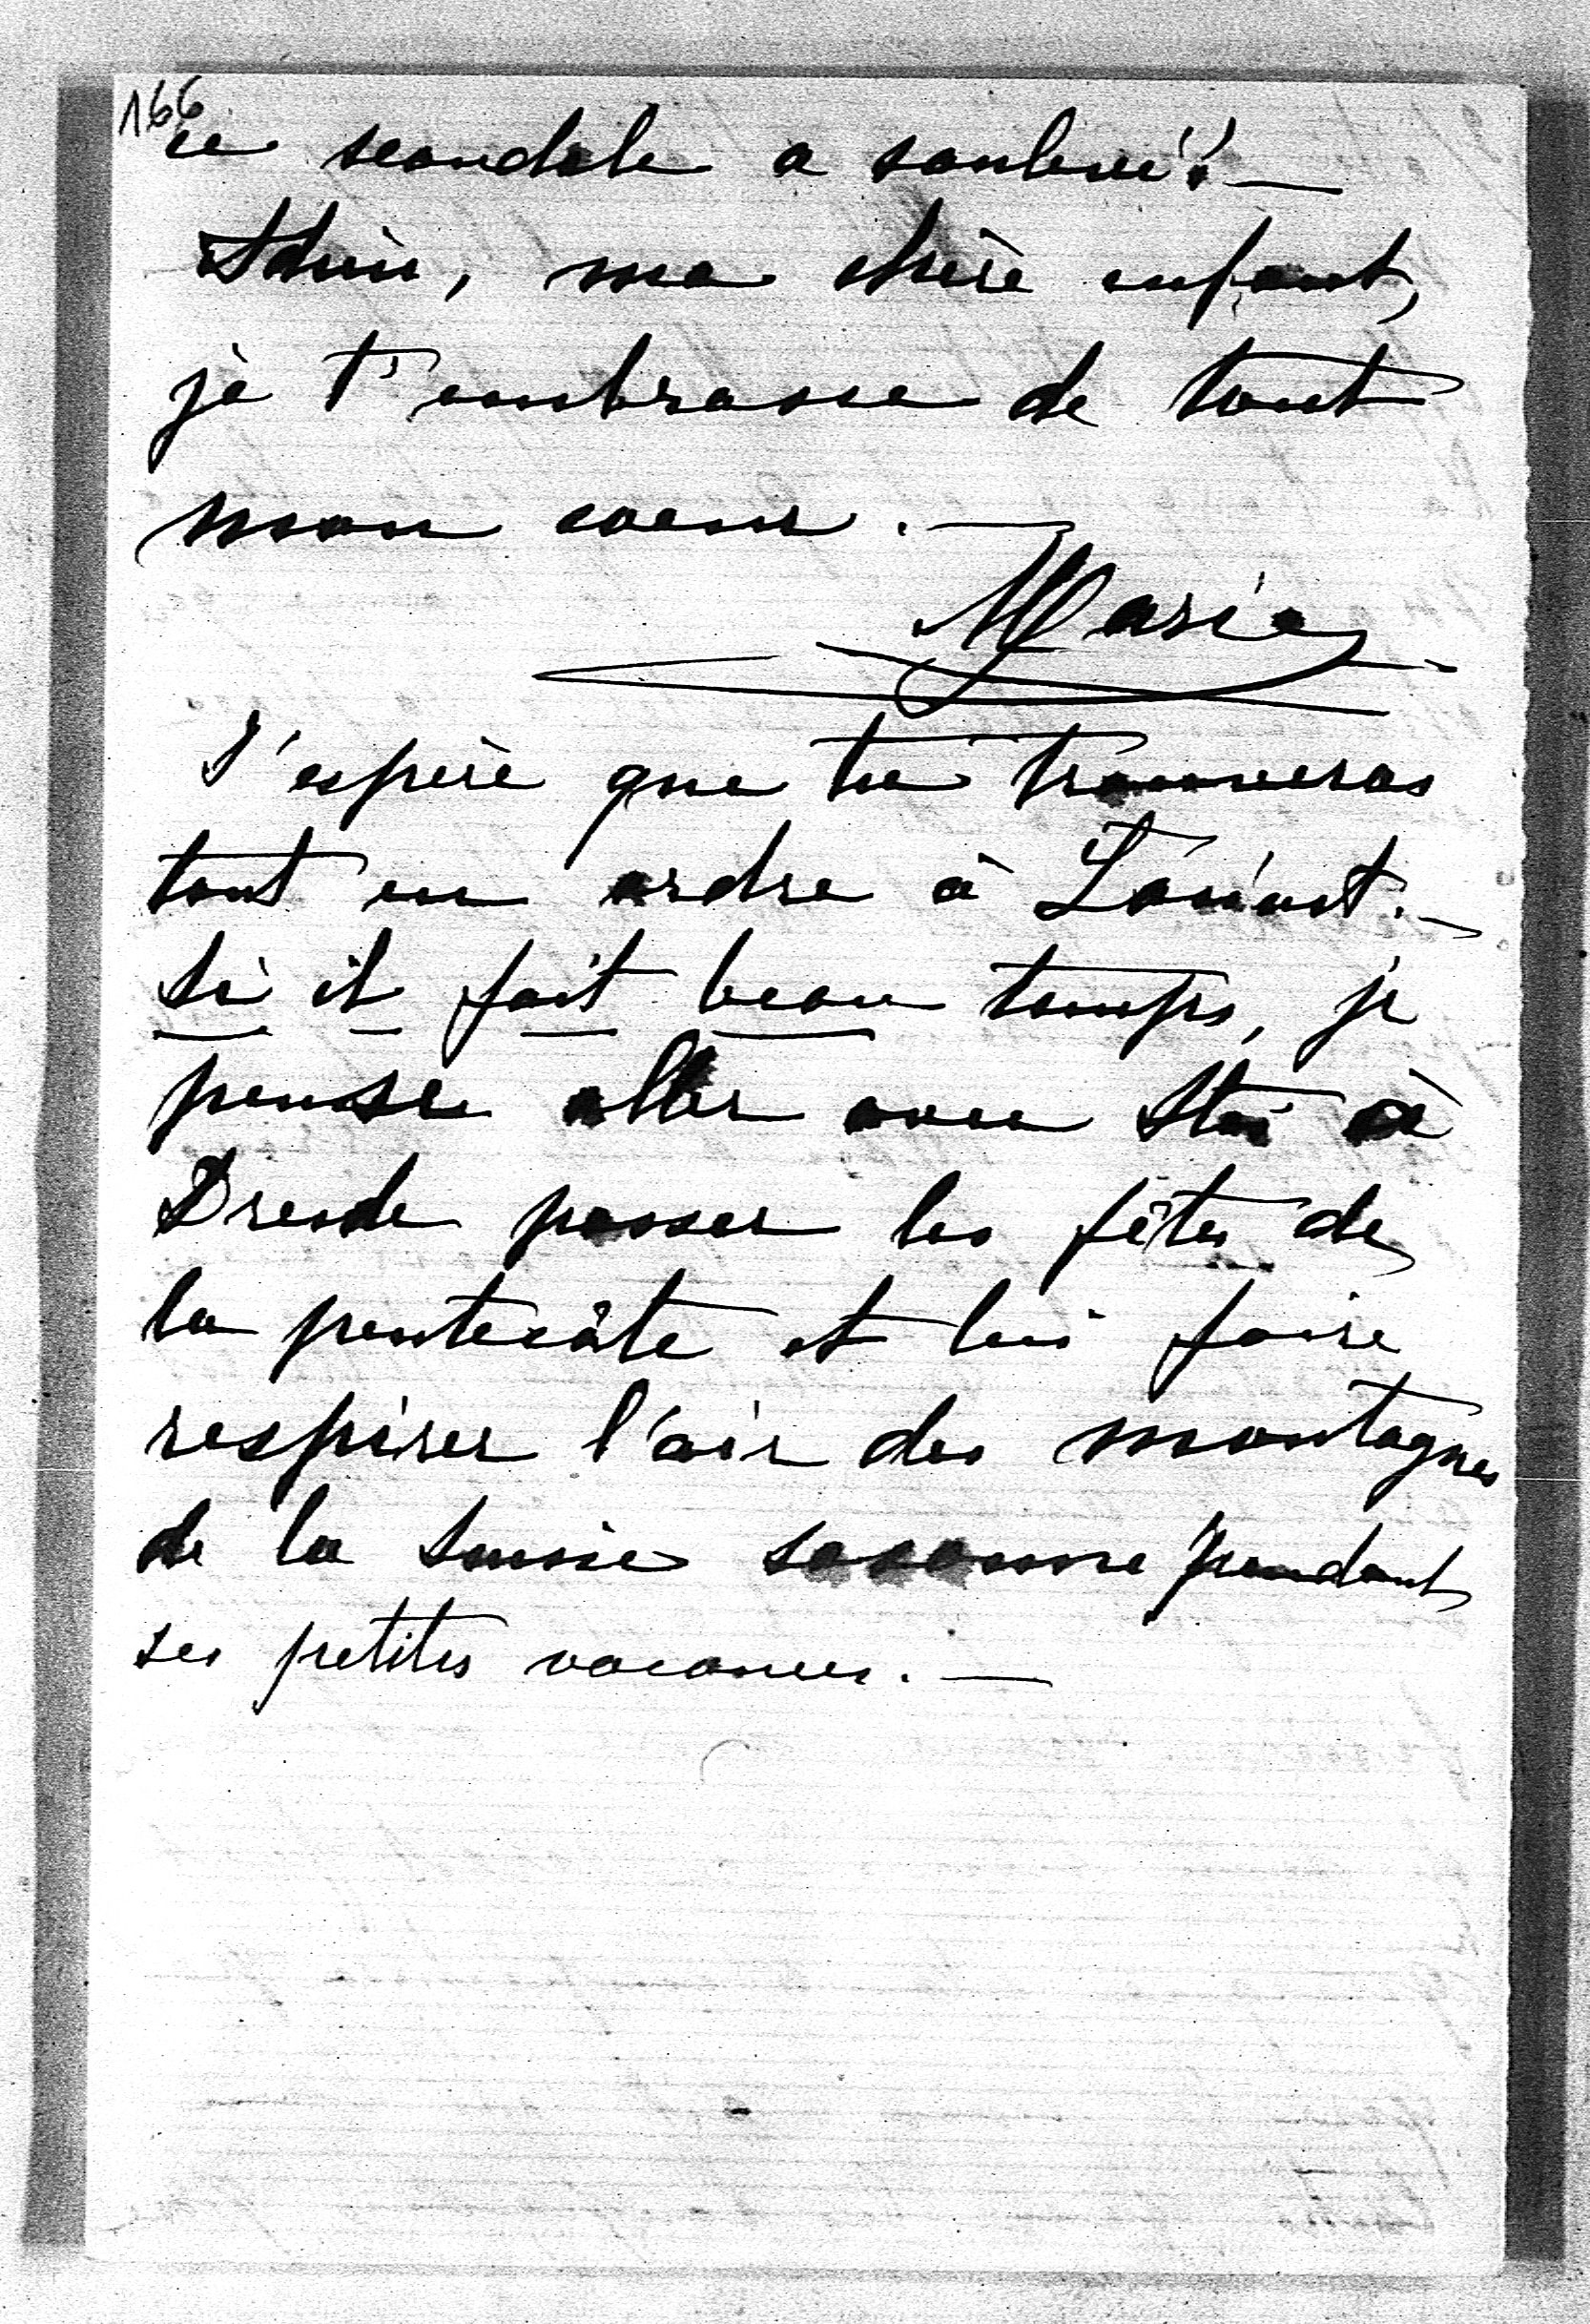 166
ce scandale a soulevé! —
Adieu, ma chère enfant,
je t'embrasse de tout
mon coeur. —
Marie
J'espère que tu trouveras
tout en ordre à
Si il fait beau temps, je
pense aller avec à
Dresde passer les fêtes de
la pentecôte et lui faire
respirer l'air des montagnes
de la Suisse saxonne pendant
ses petites vacances. —